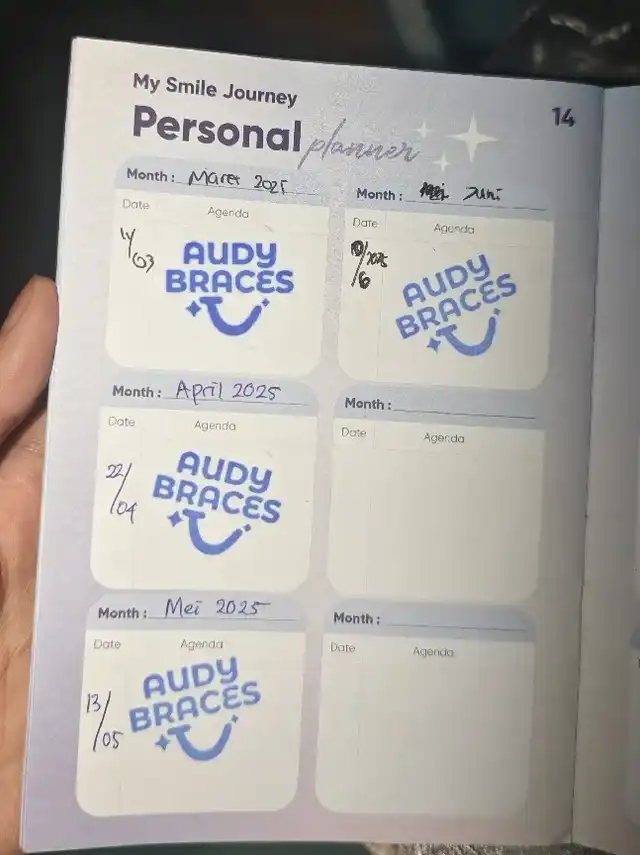 My Smile Journey
Personal planner
14
Month: Maret 2025
Date Agenda
/03
AUDY
BRACES
Month: April 2025
Date Agenda
22/04
AUDY
BRACES
Month: Mei 2025
Date Agenda
13/05
AUDY
BRACES
Month: Juni
Date Agenda
/2025
/6
AUDY
BRACES
Month:
Date Agenda
Month:
Date Agenda